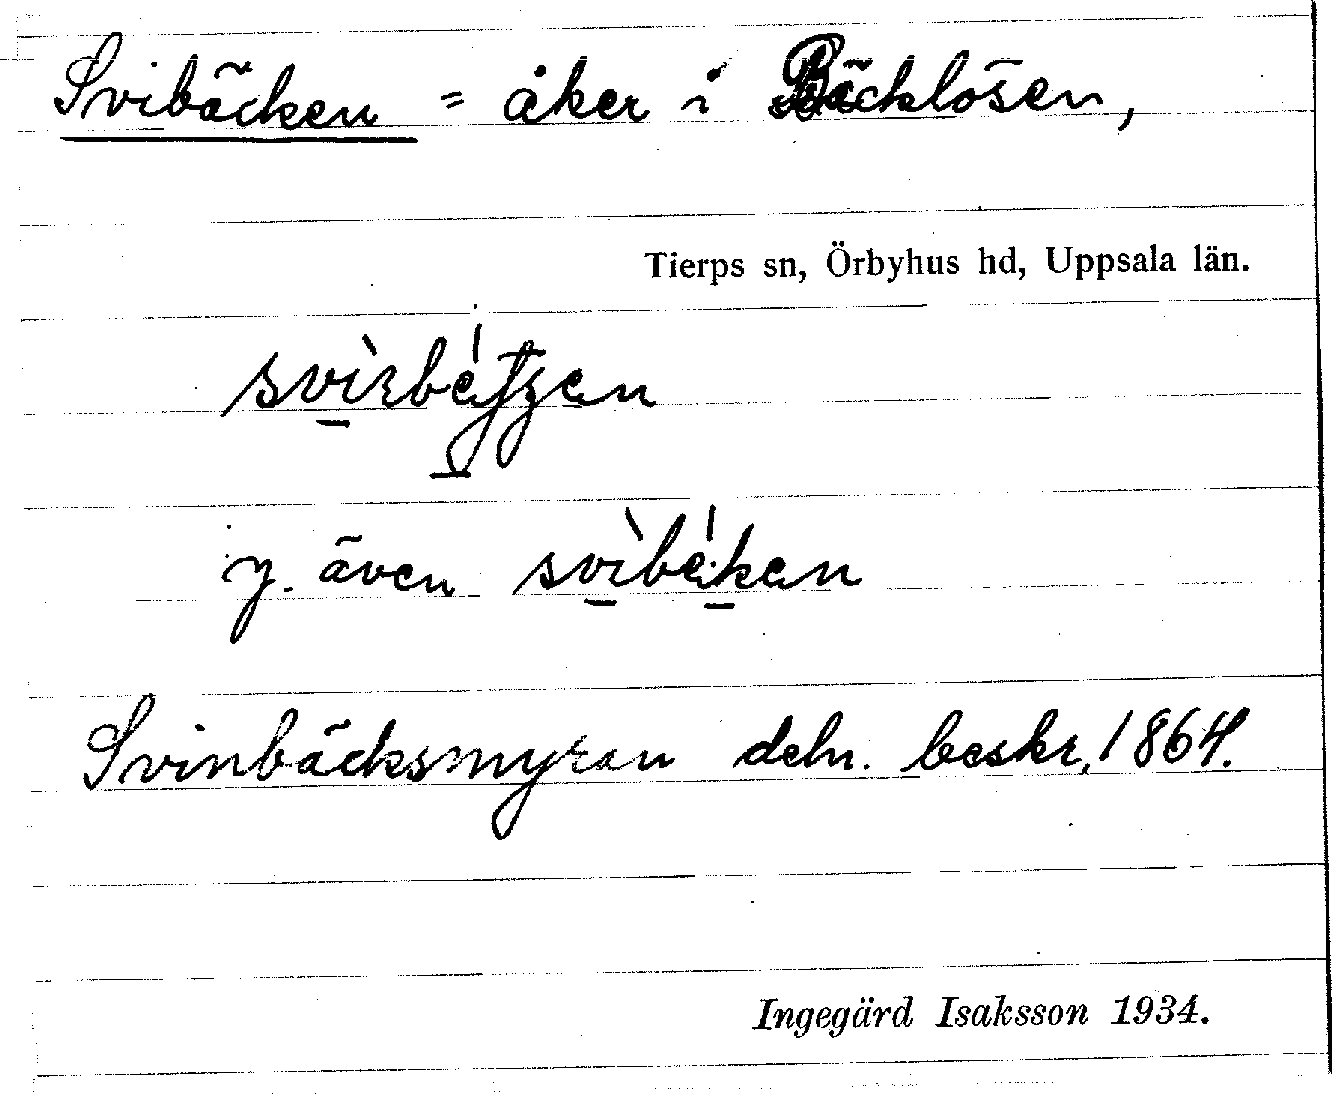 Svibäcken = åker i Bäcklösen,
Tierps sn, Örbyhus hd, Uppsala län.
y. även svìbäkan
Svinbäcksmyran deln. beskr. 1864.
Ingegärd Isaksson 1934.